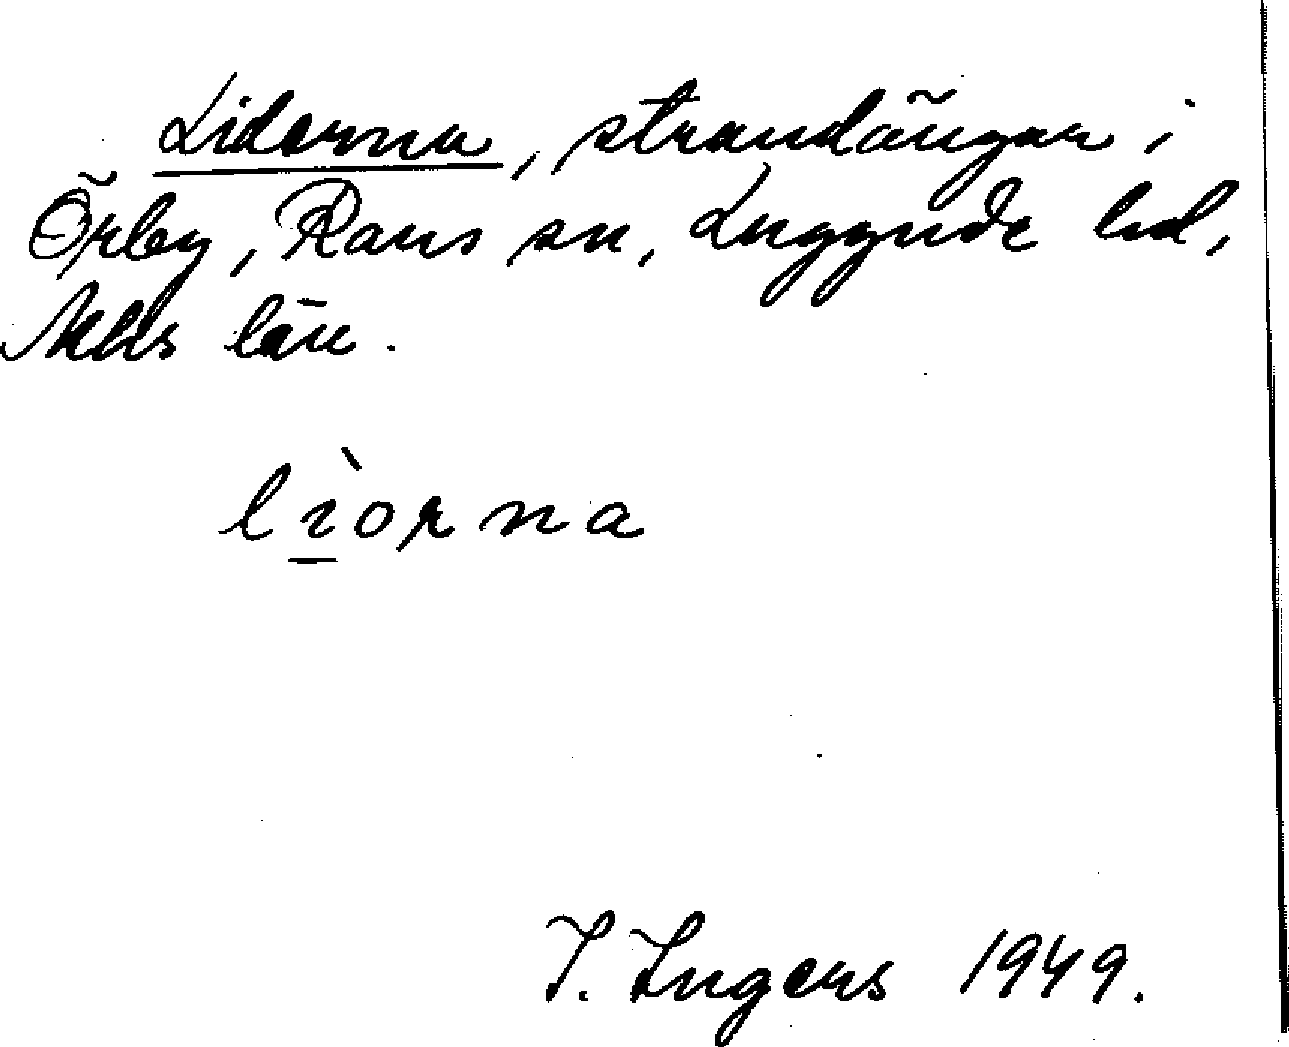 Liderna, strandängar i
Örby, Raus sn, Luggude hd,
Mhs län.
lìorna
I. Ingers 1949.